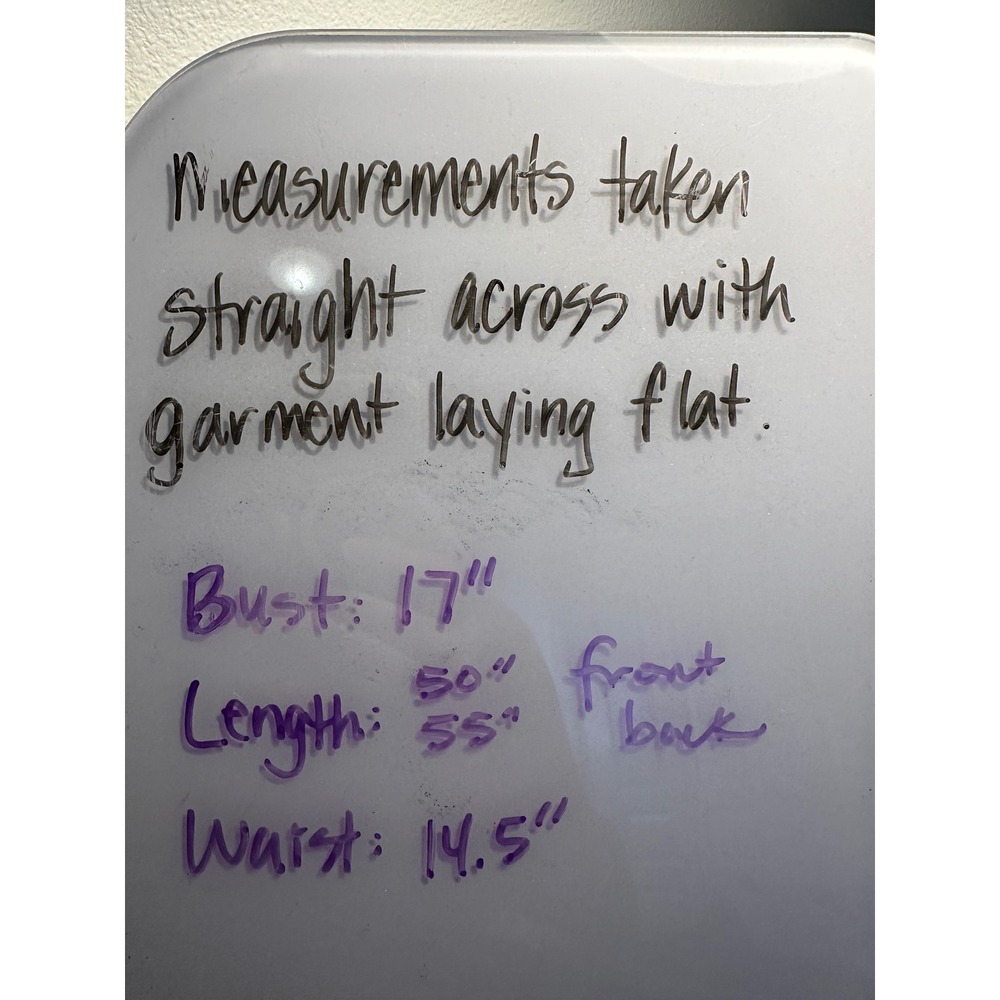 Measurements taken
straight across with
garment laying flat.
Bust: 17"
Length: 50" front
55" back
Waist: 14.5"